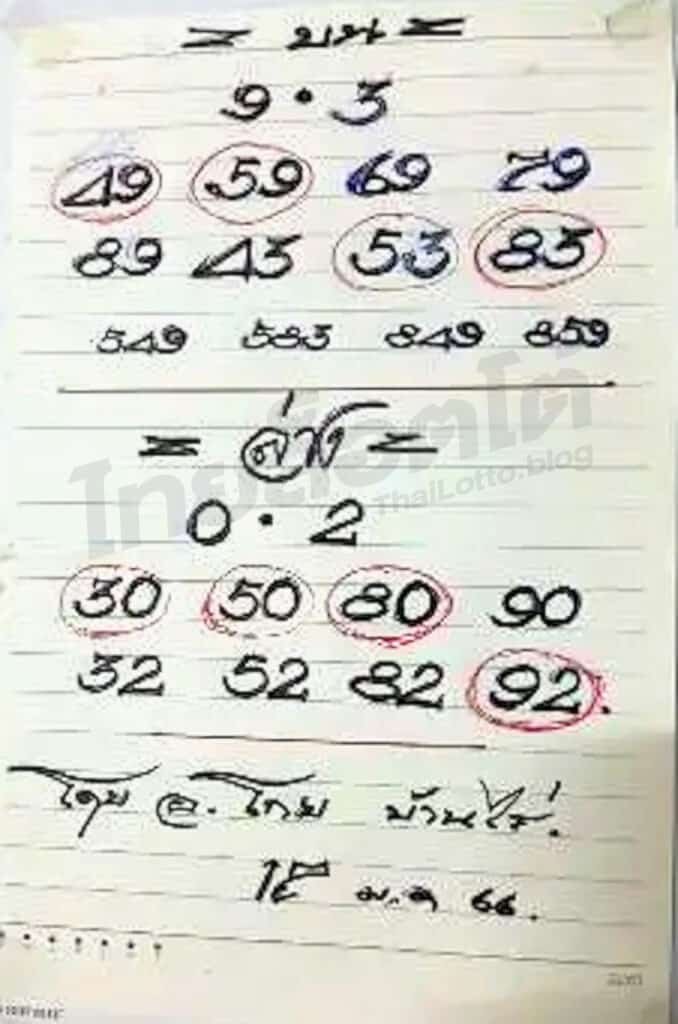 = บน =
9 • 3
49 59 69 79
89 43 53 83
549 583 849 859
= ล่าง =
ไทยล็อตโต้
ThaiLotto.blog
0 • 2
30 50 80 90
32 52 82 92.
โดย อ. โกย บ้านไร่.
ม.ค 66.